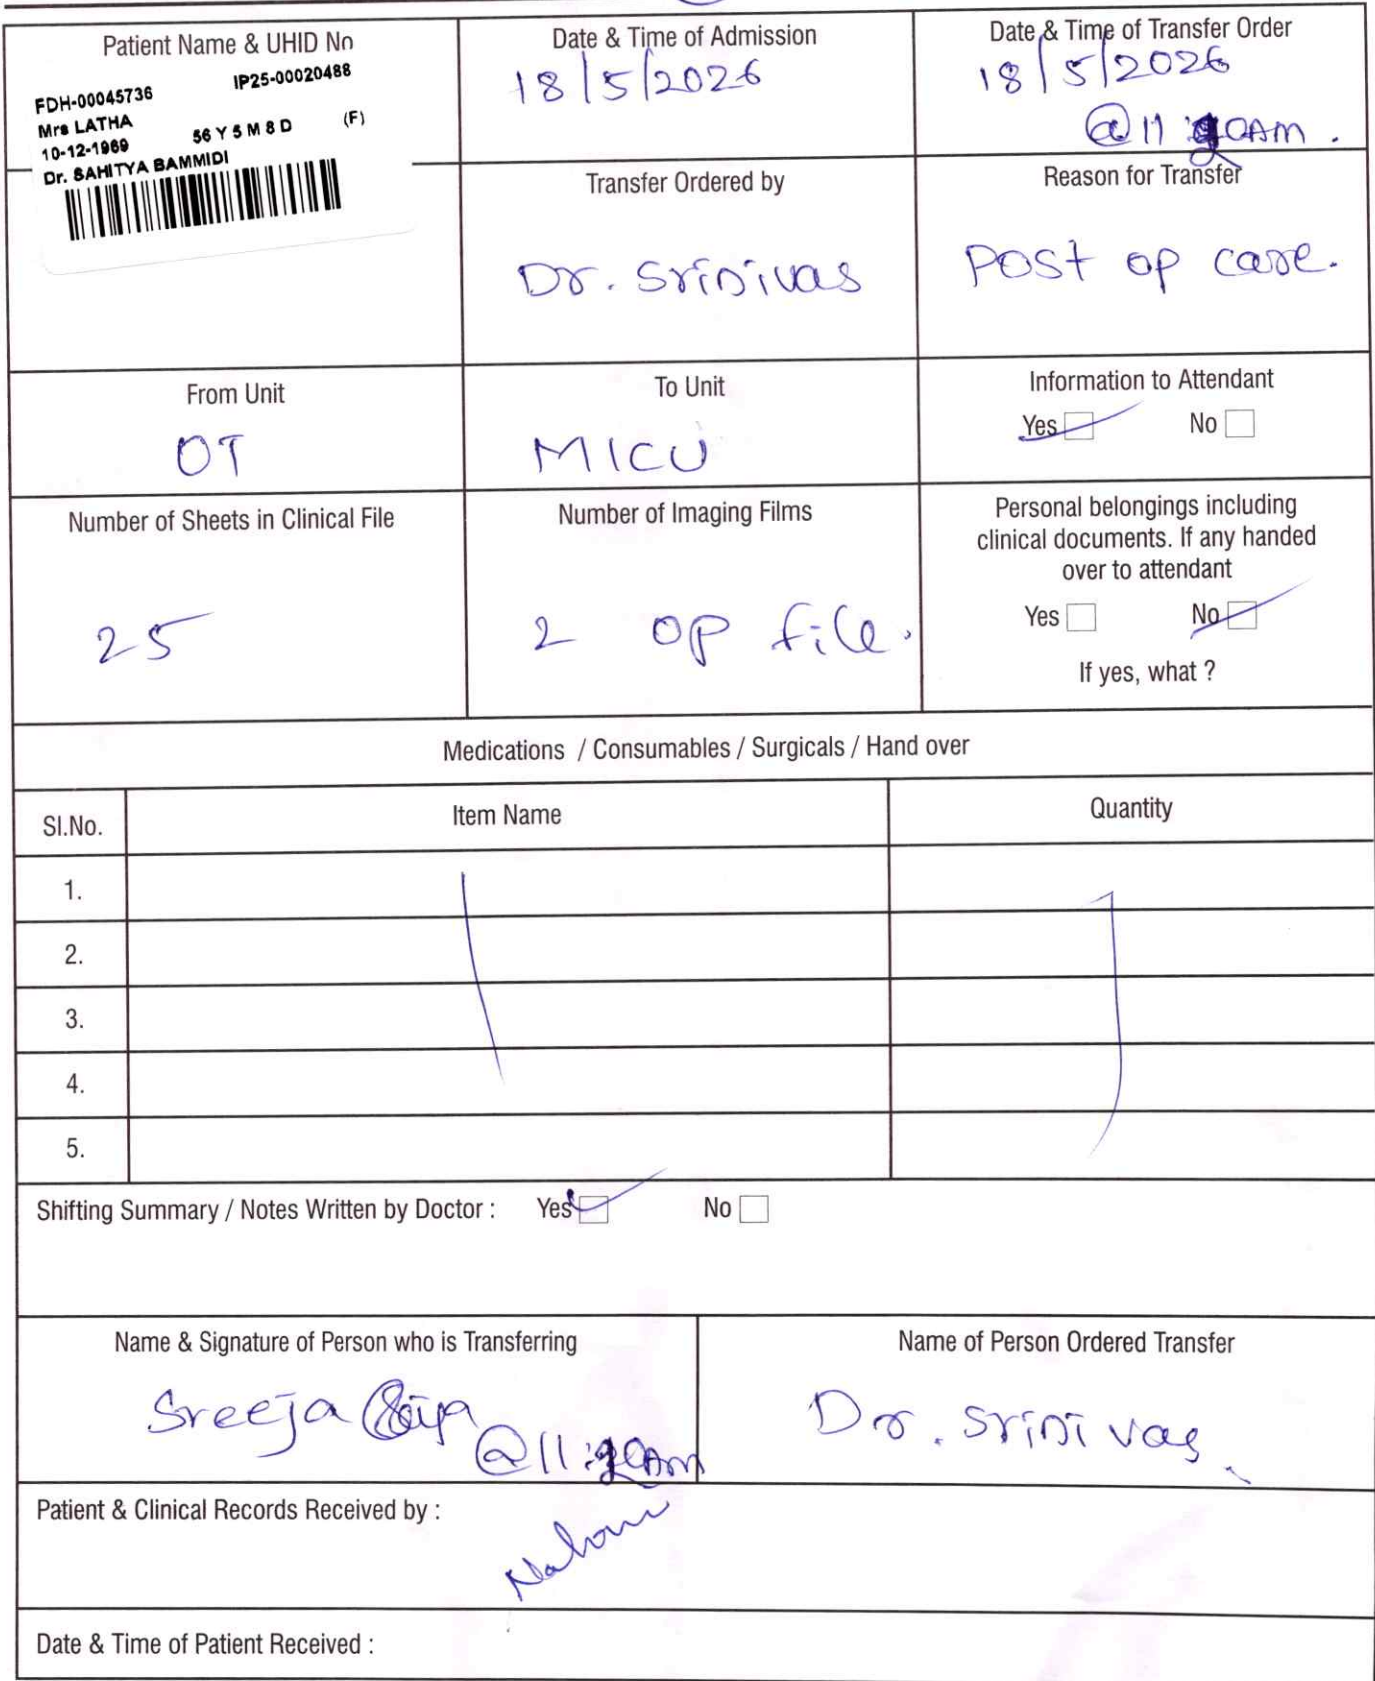 Patient Name & UHID No
FDH-00045736 IP25-00020488
Mrs LATHA
10-12-1969 56 Y 5 M 8 D (F)
Dr. SAHITYA BAMMIDI
Date & Time of Admission
18/5/2026
Date & Time of Transfer Order
18/5/2026
@ 11
Transfer Ordered by
Dr. Srinivas
Reason for Transfer
Post op care.
From Unit
OT
To Unit
MICU
Information to Attendant
Yes No
Number of Sheets in Clinical File
25
Number of Imaging Films
2 op file.
Personal belongings including
clinical documents. If any handed
over to attendant
Yes No
If yes, what ?
Medications / Consumables / Surgicals / Hand over
Sl.No. Item Name Quantity
1.
2.
3.
4.
5.
Shifting Summary / Notes Written by Doctor : Yes No
Name & Signature of Person who is Transferring
Sreeja
@ 11
Name of Person Ordered Transfer
Dr. Srinivas
Patient & Clinical Records Received by :
Date & Time of Patient Received :